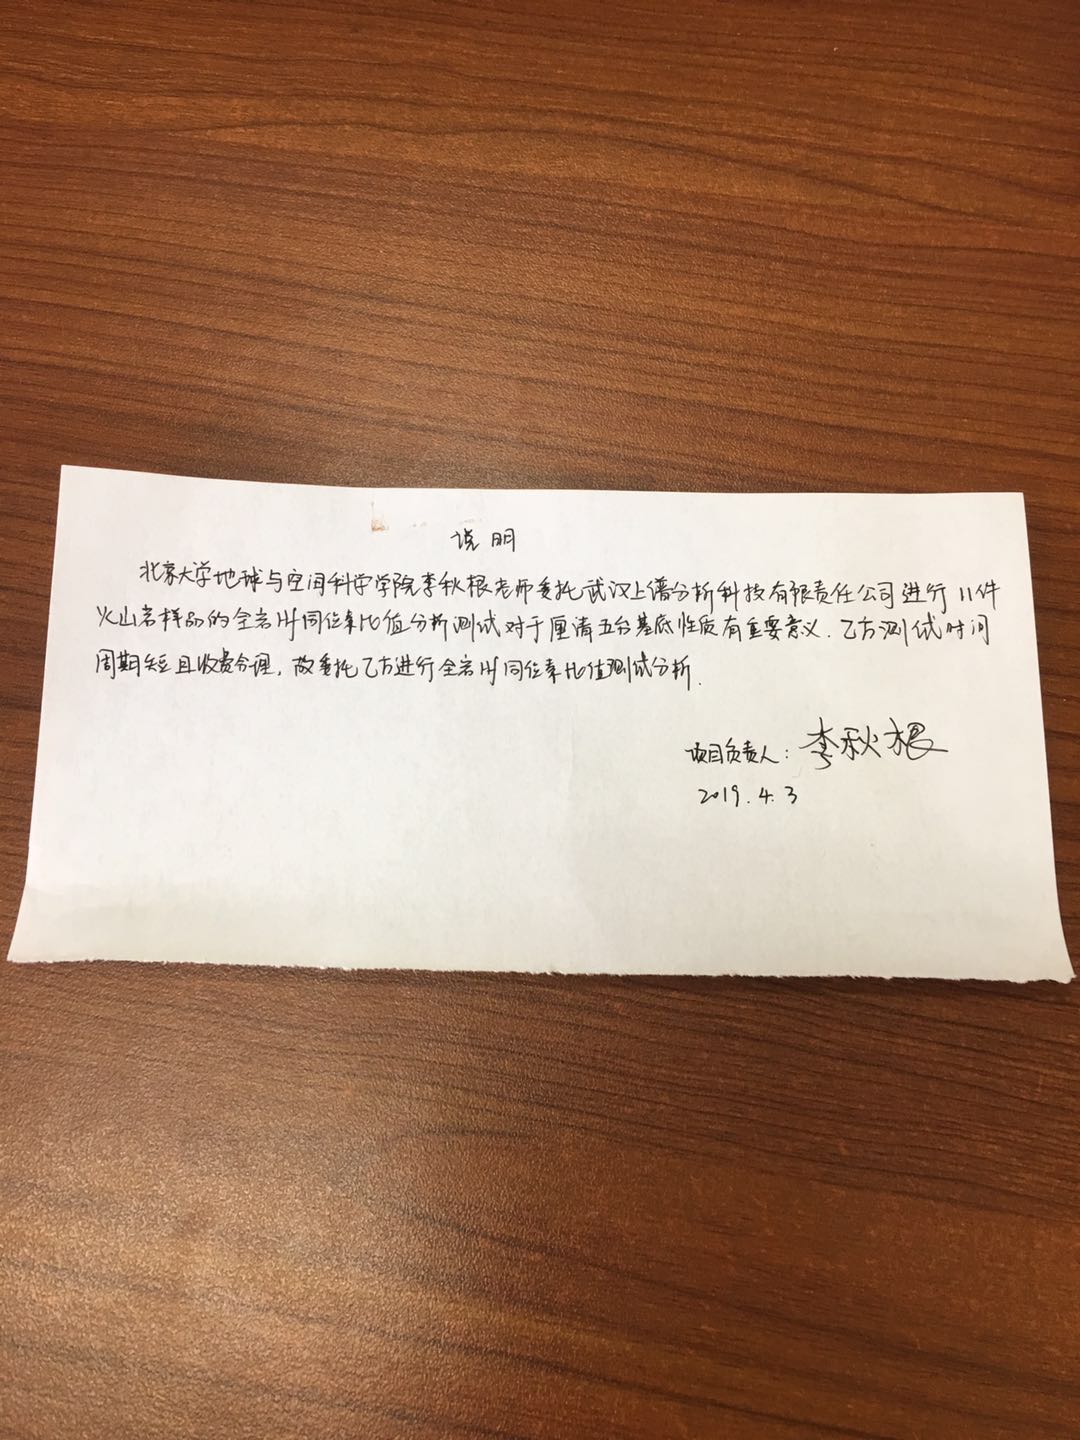 说明
北京大学地球与空间科学学院李秋根老师委托武汉上谱分析科技有限责任公司进行11件
火山岩样品的全岩Hf同位素比值分析测试对于厘清五台基底性质有重要意义.乙方测试时间
周期短且收费合理,故委托乙方进行全岩Hf同位素比值测试分析.
项目负责人:李秋根
2019.4.3